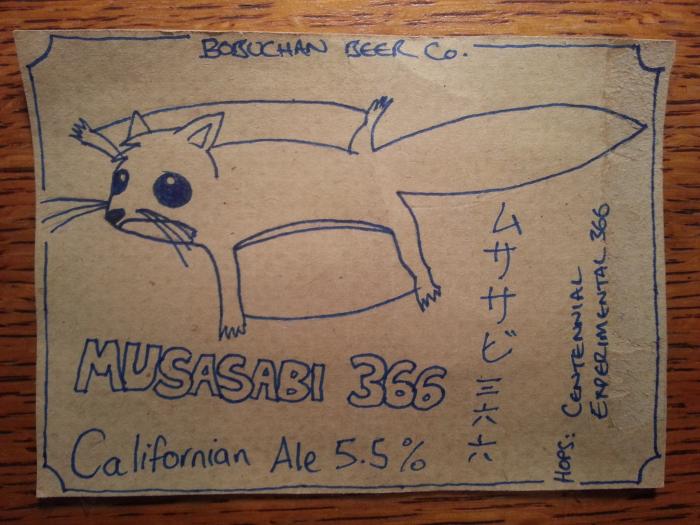 BOBUCHAN BEER Co.
MUSASABI 366
Californian Ale 5.5%
ムササビ三六六
HOPS: CENTENNIAL
EXPERIMENTAL 366